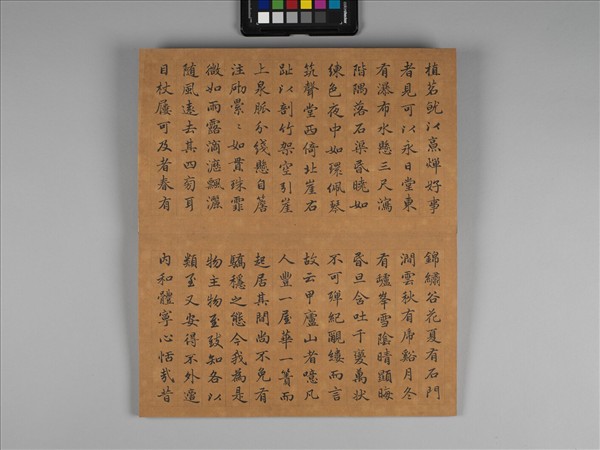 植茗就以烹燀好事
者見可以永日堂東
有瀑布水懸三尺瀉
階隅落石渠昏曉如
練色夜中如環佩琴
筑聲堂西倚北崖右
趾以剖竹架空引崖
上泉脈分綫懸自簷
注砌纍〻如貫珠霏
微如雨露滴瀝飄灑
隨風遠去其四旁耳
目杖屨可及者春有
錦繡谷花夏有石門
澗雲秋有虎谿月冬
有爐峯雪陰晴顯晦
昏旦含吐千變萬狀
不可殫紀覼縷而言
故云甲廬山者噫凡
人豐一屋華一簀而
起居其間尚不免有
驕穩之態今我為是
物主物至致知各以
類至又安得不外適
內和體寧心恬哉昔